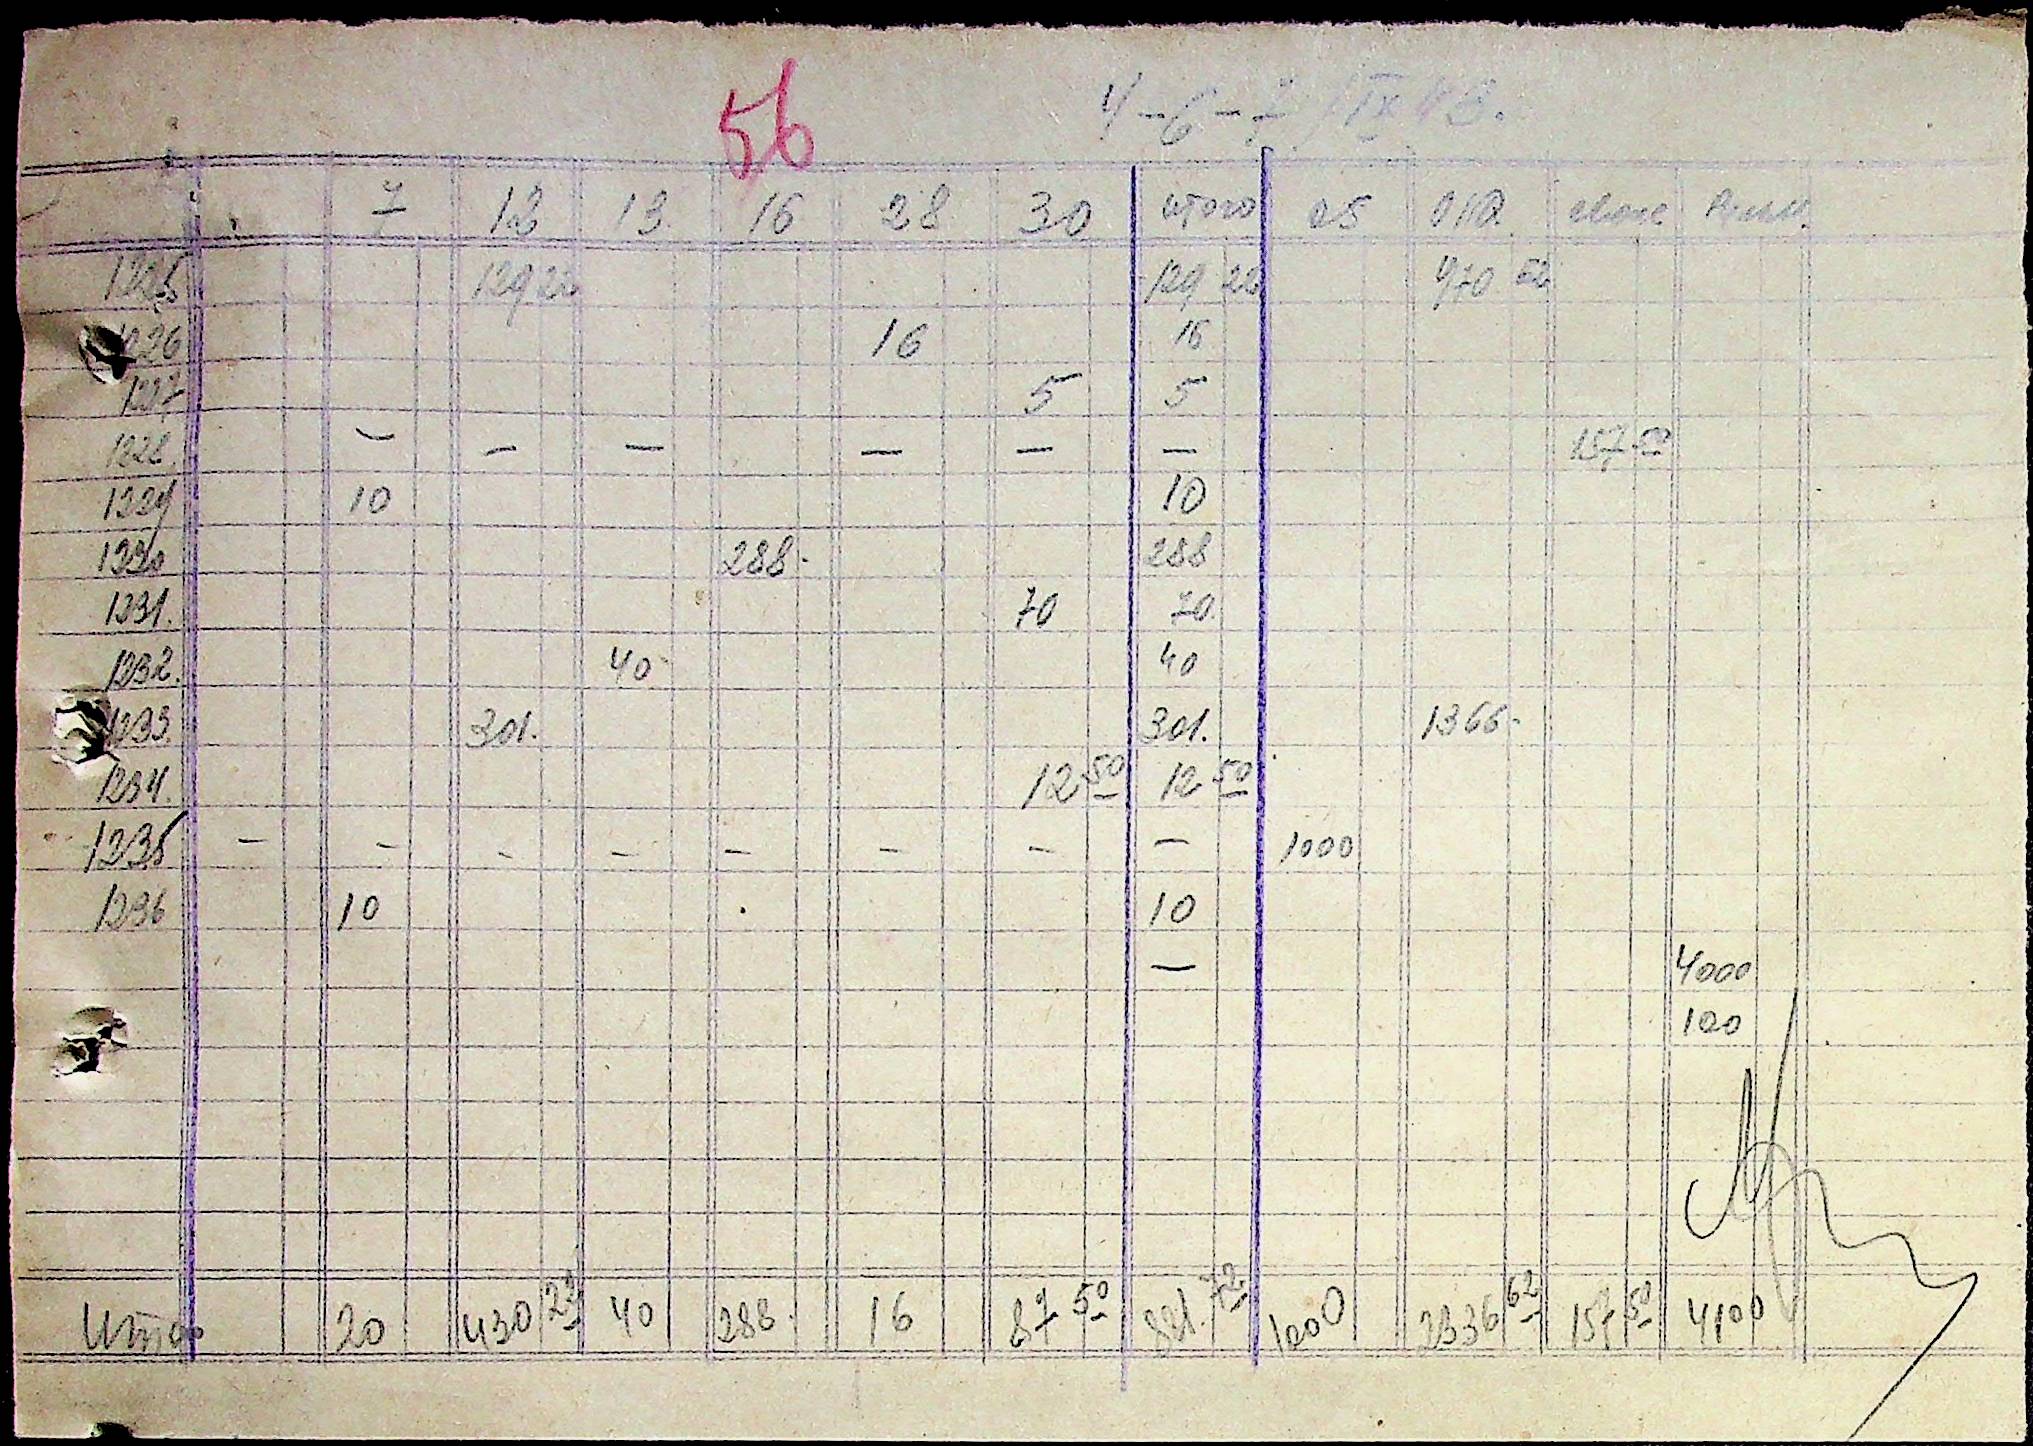 56
4-6-7/IX 43.
7 12 13 16 28 30 итого 25
1225 129 22 129 22 970 62
1226 16 16
1227 5 5
1228 — — — — — — 157 50
1229 10 10
1230 288- 288
1231. 70 70.
1232. 40 40
1233. 301. 301. 1366-
1234. 12 50 12 50
1235 — — — — — — — — 1000
1236 10 10
— 4000
100
Итого 20 430 22 40 288. 16 87 50 881. 72 1000 2336 62 157 50 4100